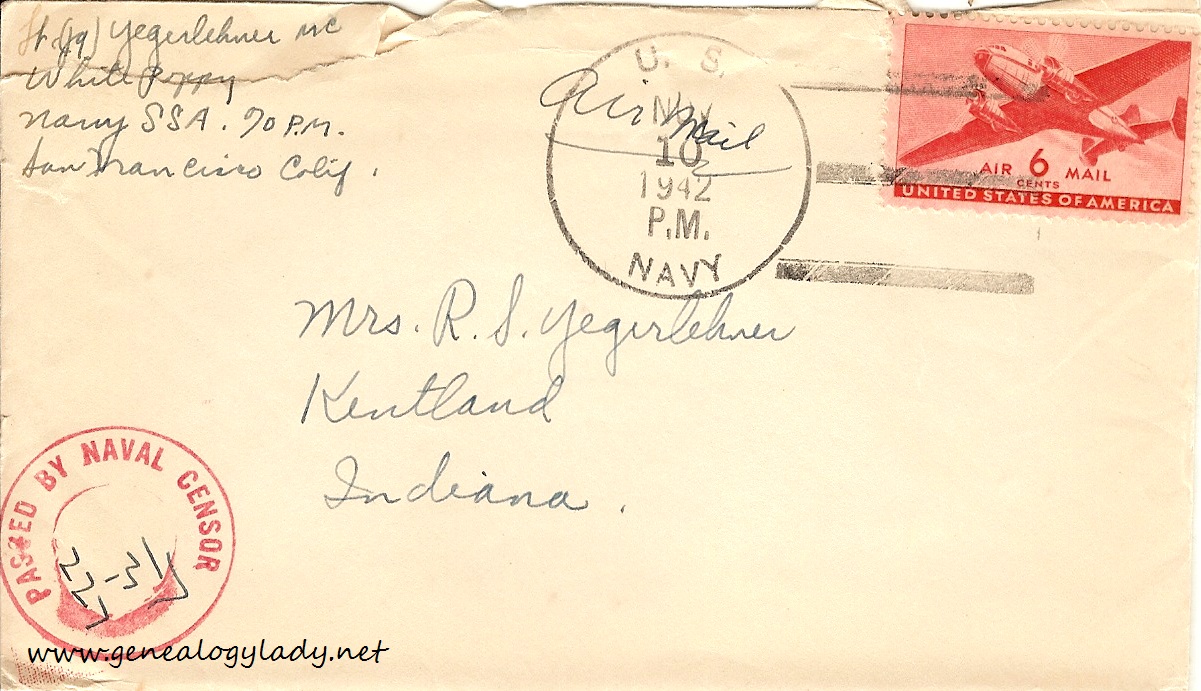 Lt. (jg) Yegerlehner MC
White Poppy
Navy SSA. 70 P.M.
San Francisco Calif.
U. S.
NOV
10
1942
P.M.
NAVY
Air Mail
AIR 6 MAIL
CENTS
UNITED STATES OF AMERICA
Mrs. R. S. Yegerlehner
Kentland
Indiana.
PASSED BY NAVAL CENSOR
www.genealogylady.net